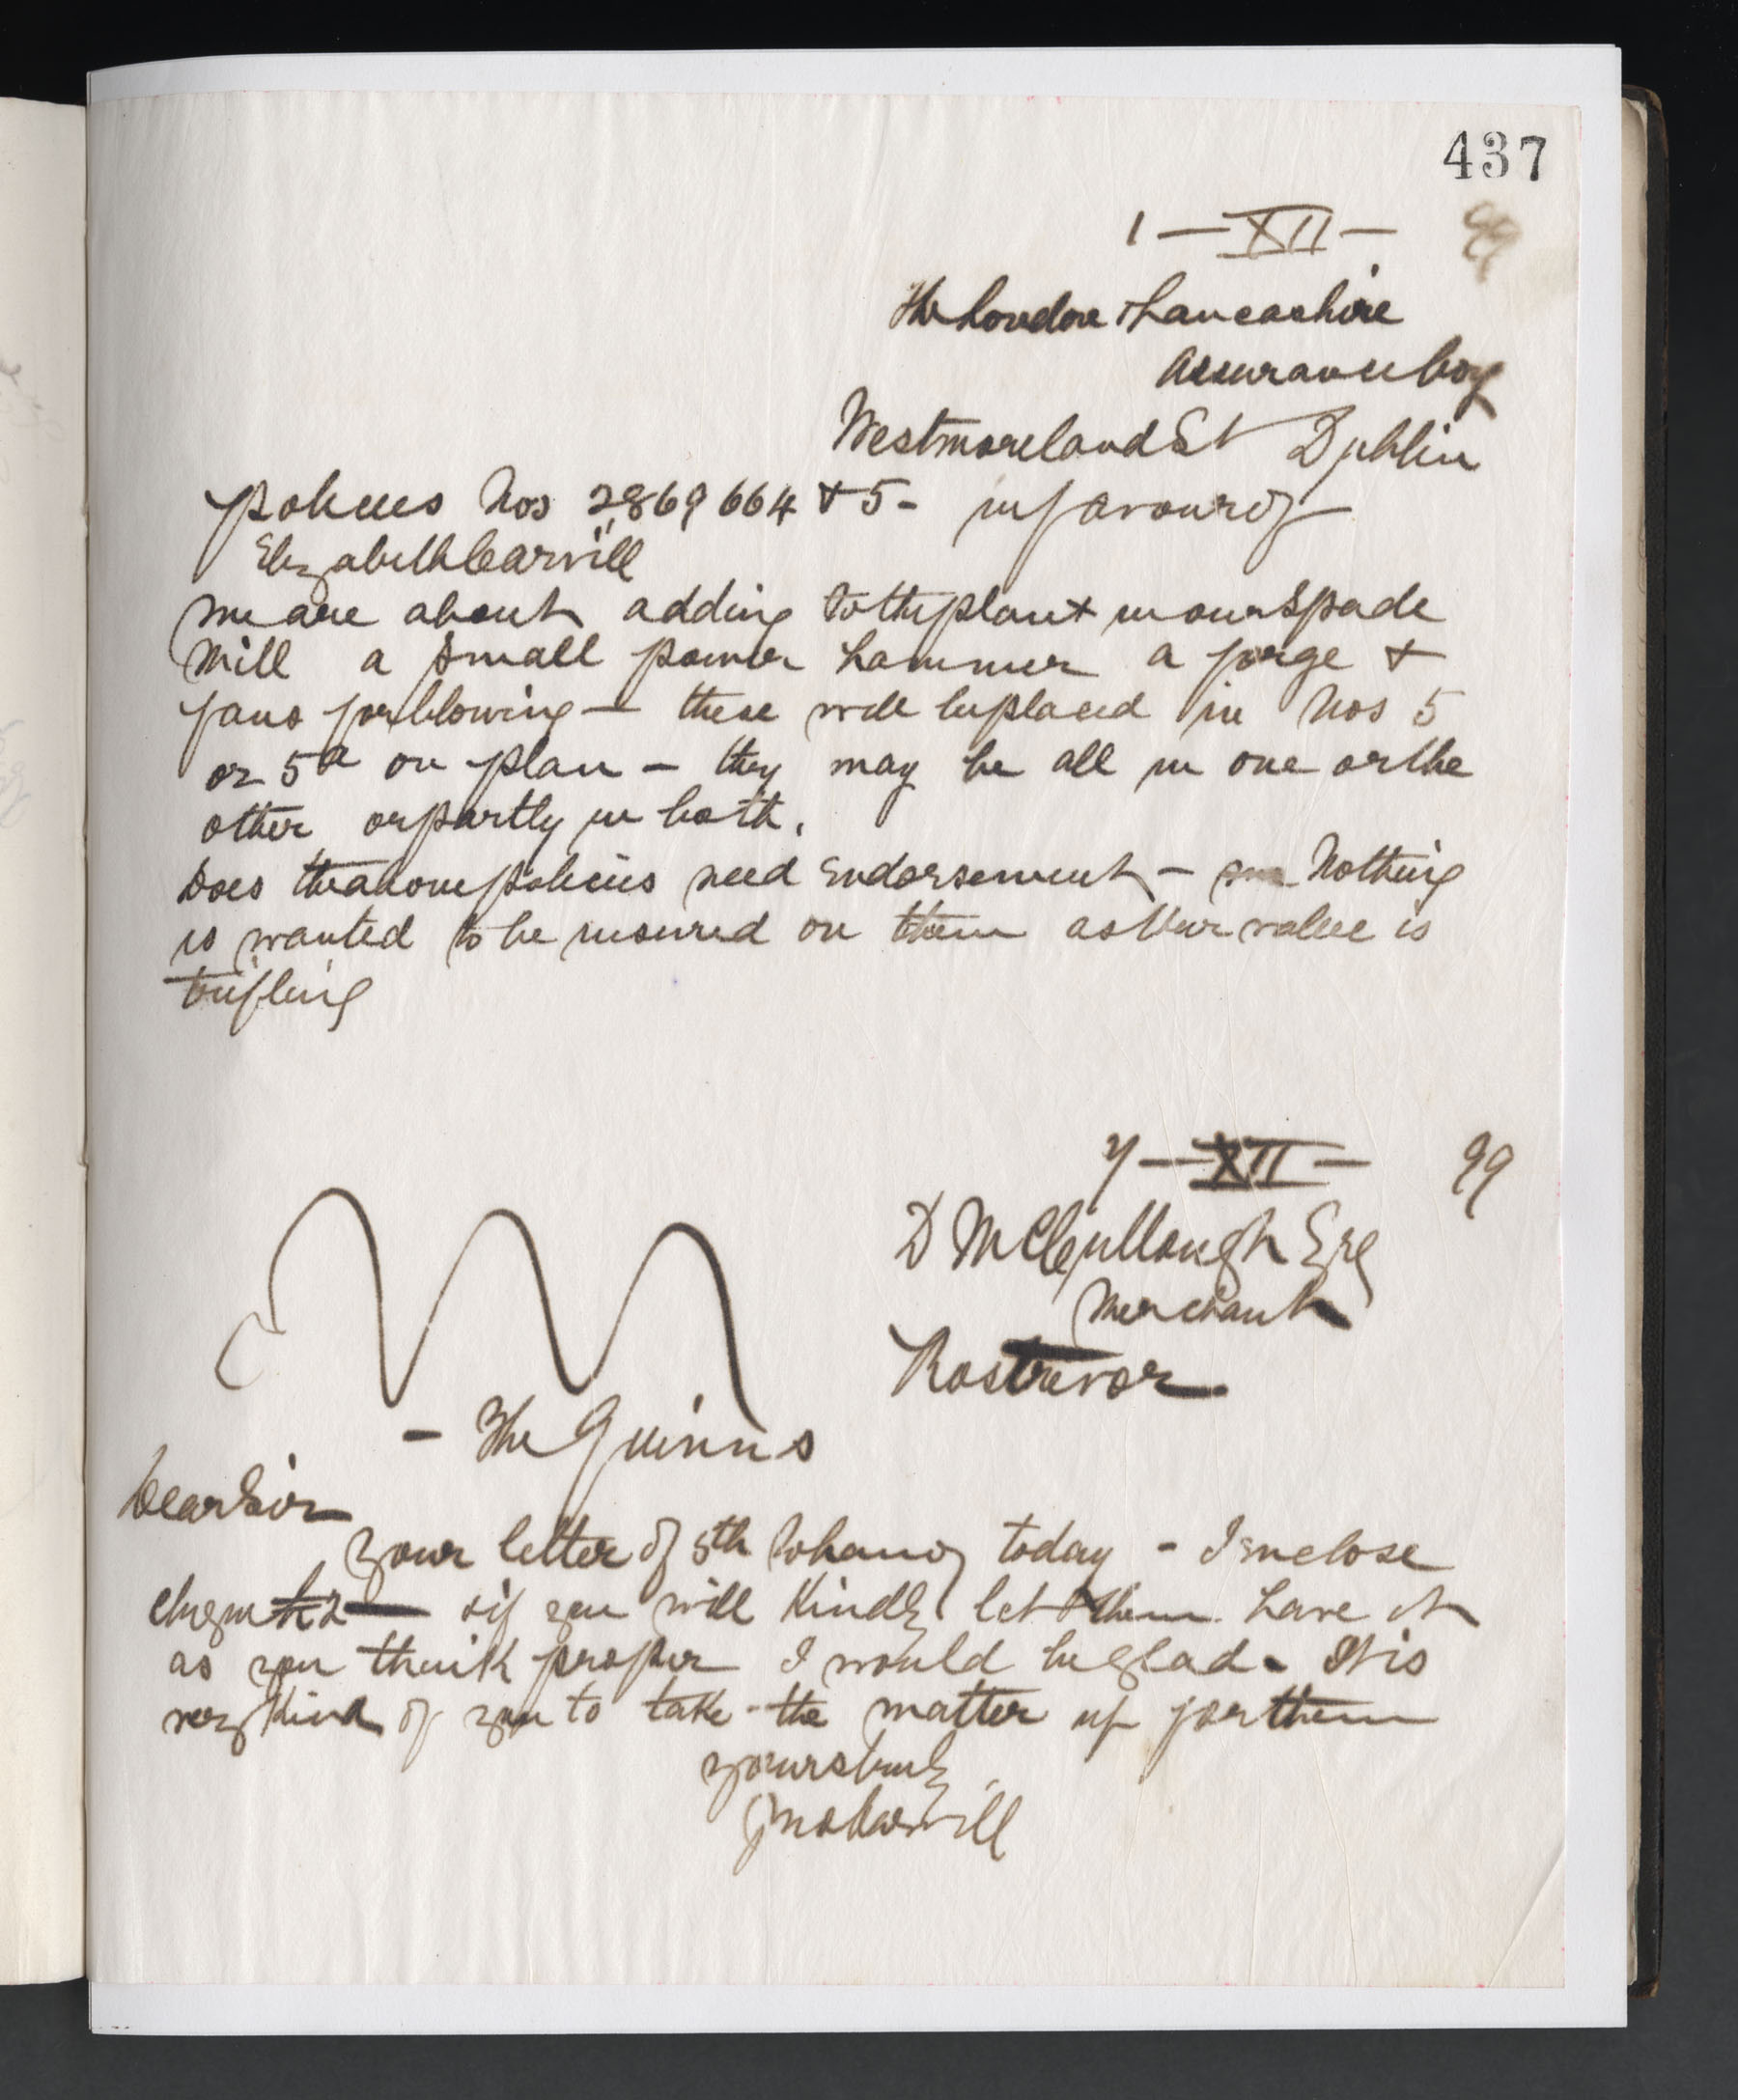 437
1 — XII — 99
The London & Lancashire
Assurance Coy
Westmoreland St Dublin
policies Nos 2869664 & 5 - in favour of
Elizabeth Carvill
We are about adding to the plant in our Spade
Mill a small power hammer a forge &
fans for blowing — these will be placed in Nos 5
or 5a on plan — they may be all in one or the
other or partly in both.
Does the above policies need Endorsement — Nothing
is wanted to be insured on them as their value is
trifling
7 — XII — 99
D McCullough Esq
Merchant
Rostrevor
— The Quinns
Dear Sir
Your letter of 5th to hand today - I enclose
cheque £2 — & if you will Kindly let them have it
as you think proper I would be glad - It is
very Kind of you to take the matter up for them
yours truly
Jno Carvill